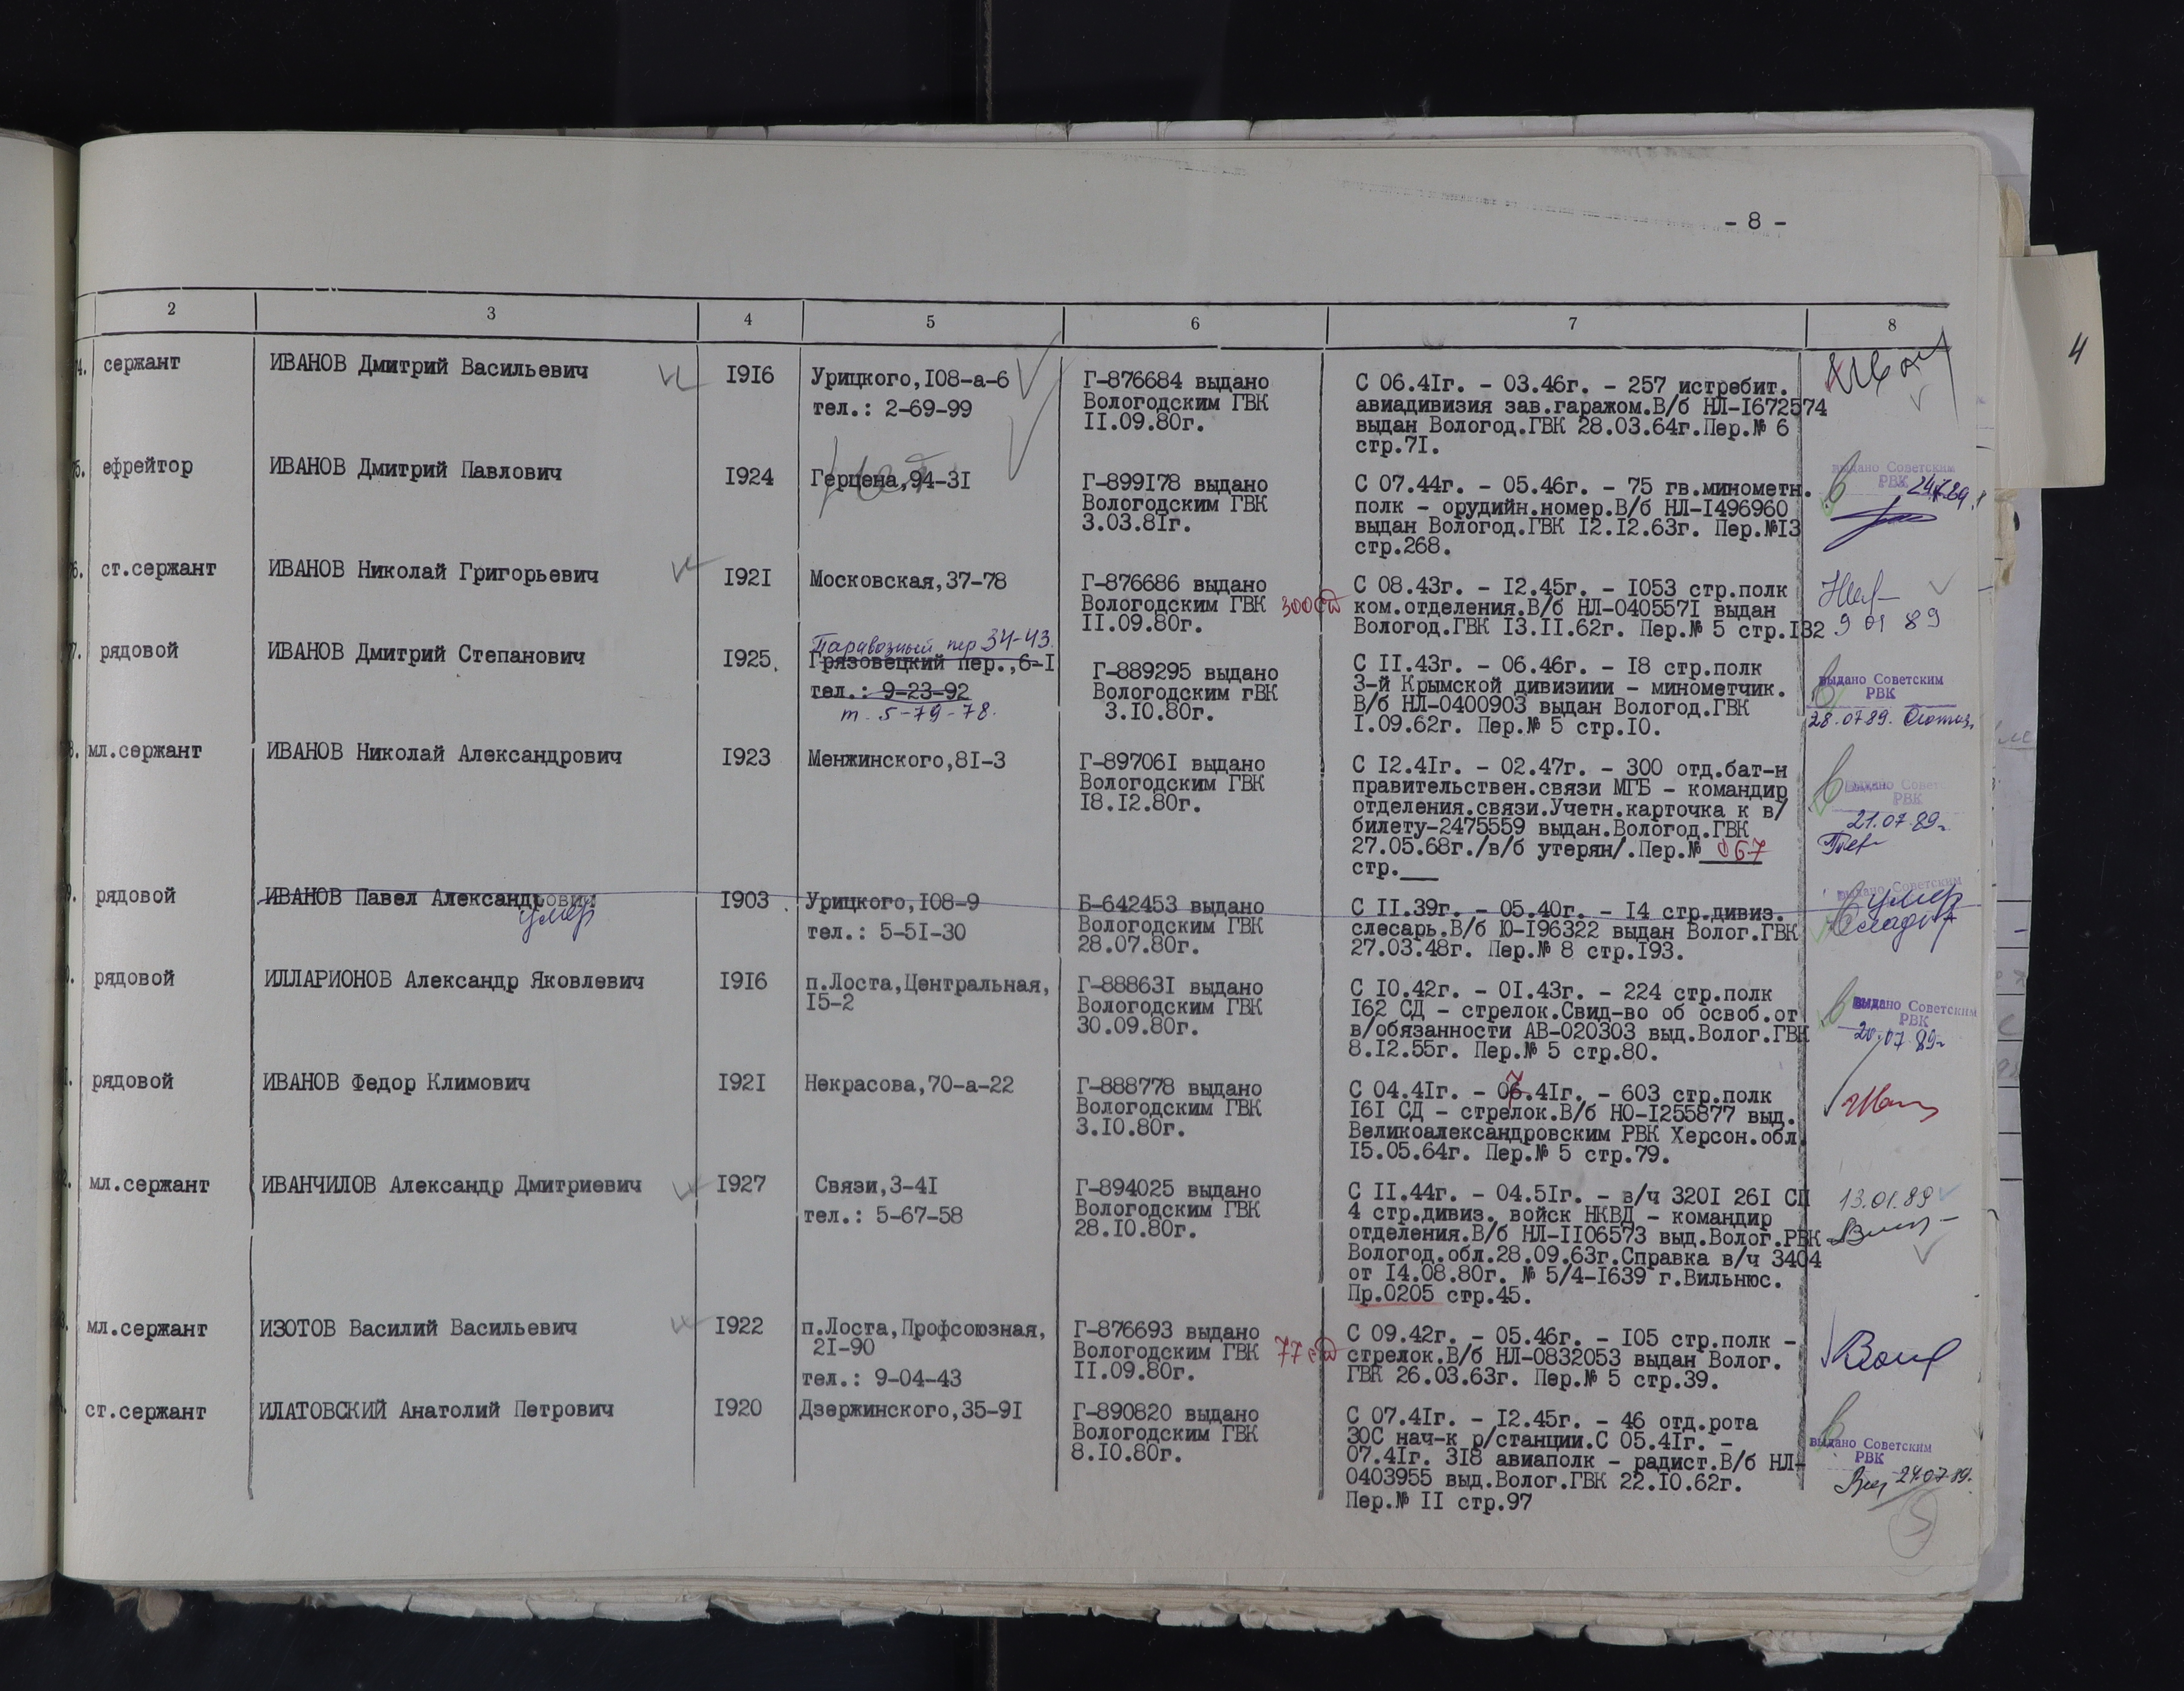 - 8 -
2 3 4 5 6 7 8
4
4. сержант ИВАНОВ Дмитрий Васильевич 1916 Урицкого,108-а-6 Г-876684 выдано С 06.41г. - 03.46г. - 257 истребит.
тел.: 2-69-99 Вологодским ГВК авиадивизия зав.гаражом.В/б НЛ-1672574
11.09.80г. выдан Вологод.ГВК 28.03.64г.Пер.№ 6
стр.71.
5. ефрейтор ИВАНОВ Дмитрий Павлович 1924 Герцена,94-31 Г-899178 выдано С 07.44г. - 05.46г. - 75 гв.минометн. выдано Советским
Вологодским ГВК полк - орудийн.номер.В/б НЛ-1496960 РВК
3.03.81г. выдан Вологод.ГВК 12.12.63г. Пер.№13
стр.268.
6. ст.сержант ИВАНОВ Николай Григорьевич 1921 Московская,37-78 Г-876686 выдано С 08.43г. - 12.45г. - 1053 стр.полк
Вологодским ГВК 300 сд ком.отделения.В/б НЛ-0405571 выдан
11.09.80г. Вологод.ГВК 13.11.62г. Пер.№ 5 стр.132 9 01 89
Паравозный пер 34-43.
7. рядовой ИВАНОВ Дмитрий Степанович 1925. Грязовецкий пер.,6-1 Г-889295 выдано С 11.43г. - 06.46г. - 18 стр.полк
тел.: 9-23-92 Вологодским гВК 3-й Крымской дивизиии - минометчик. выдано Советским
т. 5-79-78. 3.10.80г. В/б НЛ-0400903 выдан Вологод.ГВК РВК
1.09.62г. Пер.№ 5 стр.10. 28.07.89.
8. мл.сержант ИВАНОВ Николай Александрович 1923 Менжинского,81-3 Г-897061 выдано С 12.41г. - 02.47г. - 300 отд.бат-н
Вологодским ГВК правительствен.связи МГБ - командир выдано Советс
18.12.80г. отделения.связи.Учетн.карточка к в/ РВК
билету-2475559 выдан.Вологод.ГВК 21.07.89г
27.05.68г./в/б утерян/.Пер.№ 067
стр.___
9. рядовой ИВАНОВ Павел Александрович 1903 Урицкого,108-9 Б-642453 выдано С 11.39г. - 05.40г. - 14 стр.дивиз. выдано Советским умер
умер тел.: 5-51-30 Вологодским ГВК слесарь.В/б Ю-196322 выдан Волог.ГВК
28.07.80г. 27.03.48г. Пер.№ 8 стр.193.
рядовой ИЛЛАРИОНОВ Александр Яковлевич 1916 п.Лоста,Центральная, Г-888631 выдано С 10.42г. - 01.43г. - 224 стр.полк
15-2 Вологодским ГВК 162 СД - стрелок.Свид-во об освоб.от выдано Советским
30.09.80г. в/обязанности АВ-020303 выд.Волог.ГВК РВК
8.12.55г. Пер.№ 5 стр.80. 20.07.89г
рядовой ИВАНОВ Федор Климович 1921 Некрасова,70-а-22 Г-888778 выдано С 04.41г. - 07.41г. - 603 стр.полк
Вологодским ГВК 161 СД - стрелок.В/б НО-1255877 выд.
3.10.80г. Великоалександровским РВК Херсон.обл.
15.05.64г. Пер.№ 5 стр.79.
мл.сержант ИВАНЧИЛОВ Александр Дмитриевич 1927 Связи,3-41 Г-894025 выдано С 11.44г. - 04.51г. - в/ч 3201 261 СП 13.01.89
тел.: 5-67-58 Вологодским ГВК 4 стр.дивиз. войск НКВД - командир
28.10.80г. отделения.В/б НЛ-1106573 выд.Волог.РВК
Вологод.обл.28.09.63г.Справка в/ч 3404
от 14.08.80г. № 5/4-1639 г.Вильнюс.
Пр.0205 стр.45.
мл.сержант ИЗОТОВ Василий Васильевич 1922 п.Лоста,Профсоюзная, Г-876693 выдано С 09.42г. - 05.46г. - 105 стр.полк -
21-90 Вологодским ГВК 77 сд стрелок.В/б НЛ-0832053 выдан Волог.
тел.: 9-04-43 11.09.80г. ГВК 26.03.63г. Пер.№ 5 стр.39.
ст.сержант ИЛАТОВСКИЙ Анатолий Петрович 1920 Дзержинского,35-91 Г-890820 выдано С 07.41г. - 12.45г. - 46 отд.рота
Вологодским ГВК ЗОС нач-к р/станции.С 05.41г. - выдано Советским
8.10.80г. 07.41г. 318 авиаполк - радист.В/б НЛ- РВК
0403955 выд.Волог.ГВК 22.10.62г. 24.07.89.
Пер.№ 11 стр.97